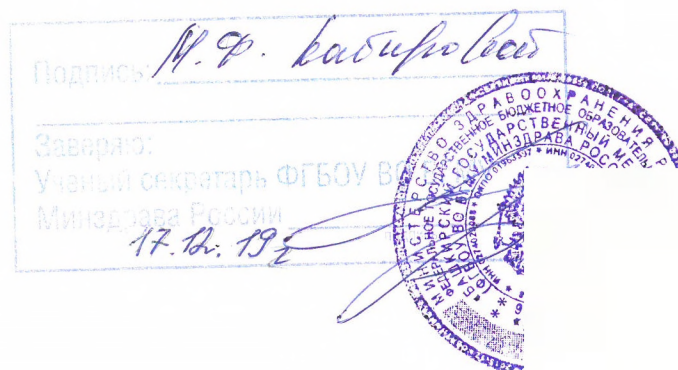 Подпись: М.Ф. Кабировой
Заверяю:
Ученый секретарь ФГБОУ ВО
Минздрава России
17.12.19г
МИНИСТЕРСТВО ЗДРАВООХРАНЕНИЯ Р
ФЕДЕРАЛЬНОЕ ГОСУДАРСТВЕННОЕ БЮДЖЕТНОЕ ОБРАЗОВАТЕЛЬ
БАШКИРСКИЙ ГОСУДАРСТВЕННЫЙ МЕ
(ФГБОУ ВО БГМУ МИНЗДРАВА РОСС